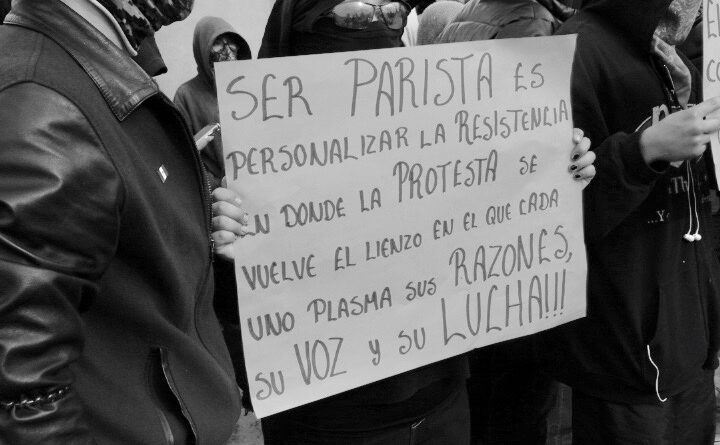 SER PARISTA ES
PERSONALIZAR LA RESISTENCIA
EN DONDE LA PROTESTA SE
VUELVE EL LIENZO EN EL QUE CADA
UNO PLASMA SUS RAZONES,
SU VOZ Y SU LUCHA!!!